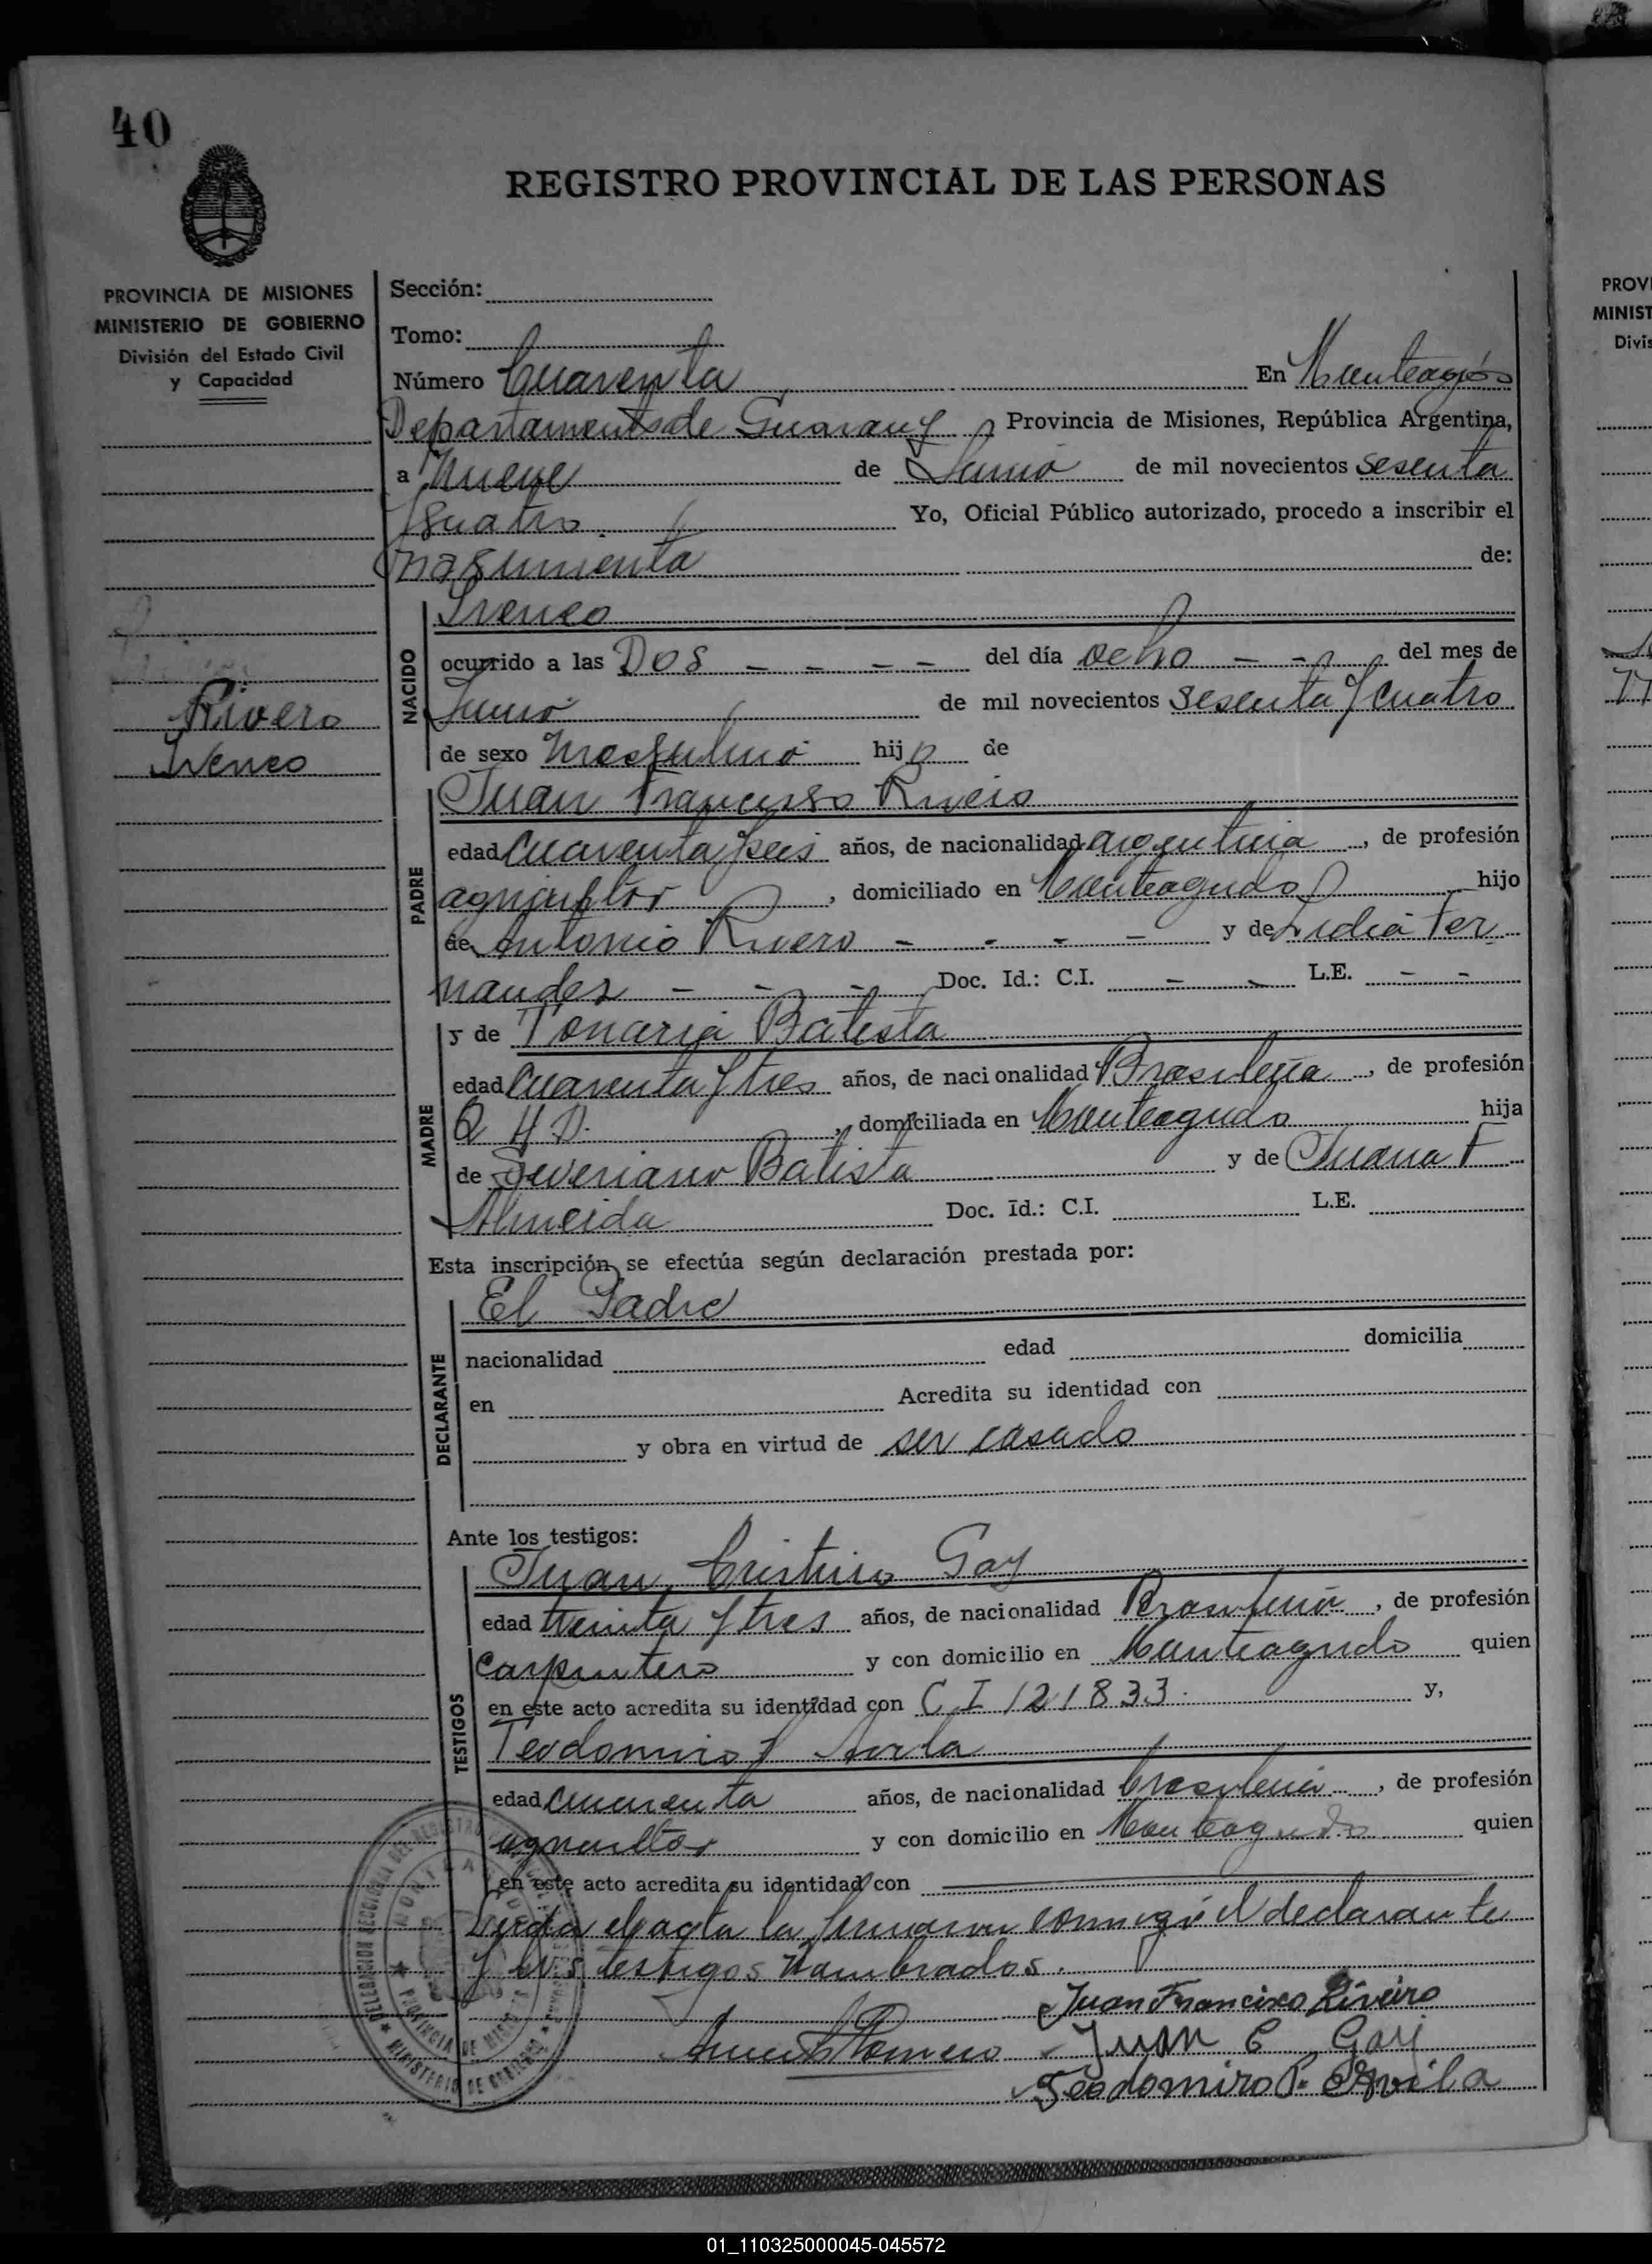 40
REGISTRO PROVINCIAL DE LAS PERSONAS
PROVINCIA DE MISIONES
MINISTERIO DE GOBIERNO
División del Estado Civil
y Capacidad
Rivero
Ireneo
Sección:
Tomo:
Número Cuarenta En Monteagdo
Departamento de Guarany Provincia de Misiones, República Argentina,
a Nueve de Junio de mil novecientos sesenta
y cuatro Yo, Oficial Público autorizado, procedo a inscribir el
nasimiento de:
NACIDO
Ireneo
ocurrido a las Dos - - - - del día ocho - - del mes de
Junio de mil novecientos sesenta y cuatro
de sexo Masculino hijo de
PADRE
Juan Francisco Rivero
edad Cuarenta y seis años, de nacionalidad argentina, de profesión
agricultor, domiciliado en Monteagudo hijo
de Antonio Rivero - - - - y de Lidia Fer
nandes - - - Doc. Id.: C.I. - - L.E. - -
MADRE
y de Tonaria Batista
edad Cuarenta y tres años, de nacionalidad Brasileña, de profesión
Q H D., domiciliada en Monteagudo hija
de Severiano Batista y de Juana F
Almeida Doc. Id.: C.I. L.E.
Esta inscripción se efectúa según declaración prestada por:
DECLARANTE
El Padre
nacionalidad edad domicilia
en Acredita su identidad con
y obra en virtud de ser casado
Ante los testigos:
TESTIGOS
Juan Cristino Gay
edad treinta y tres años, de nacionalidad, de profesión
carpintero y con domicilio en Monteagudo quien
en este acto acredita su identidad con C I 121833. y,
Teodomiro Avila
edad cuarenta años, de nacionalidad brasileña, de profesión
agricultor y con domicilio en Monteagudo quien
en este acto acredita su identidad con
Leida el acta la firmaron conmigo el declarante
y los testigos nombrados.
Juan Francisco Riveiro
Romero Juan C Gay
Teodomiro P. Avila
MINISTERIO DE GOBIERNO
PROVINCIA DE MISIONES
PROV
MINIST
Divis
01_110325000045-045572